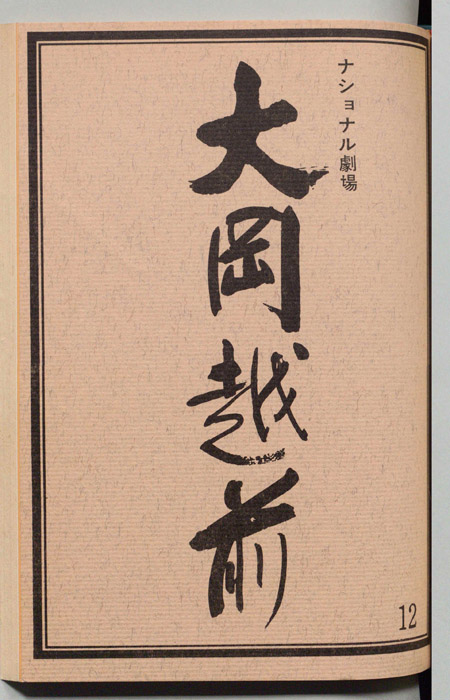 ナショナル劇場
大岡越前
12